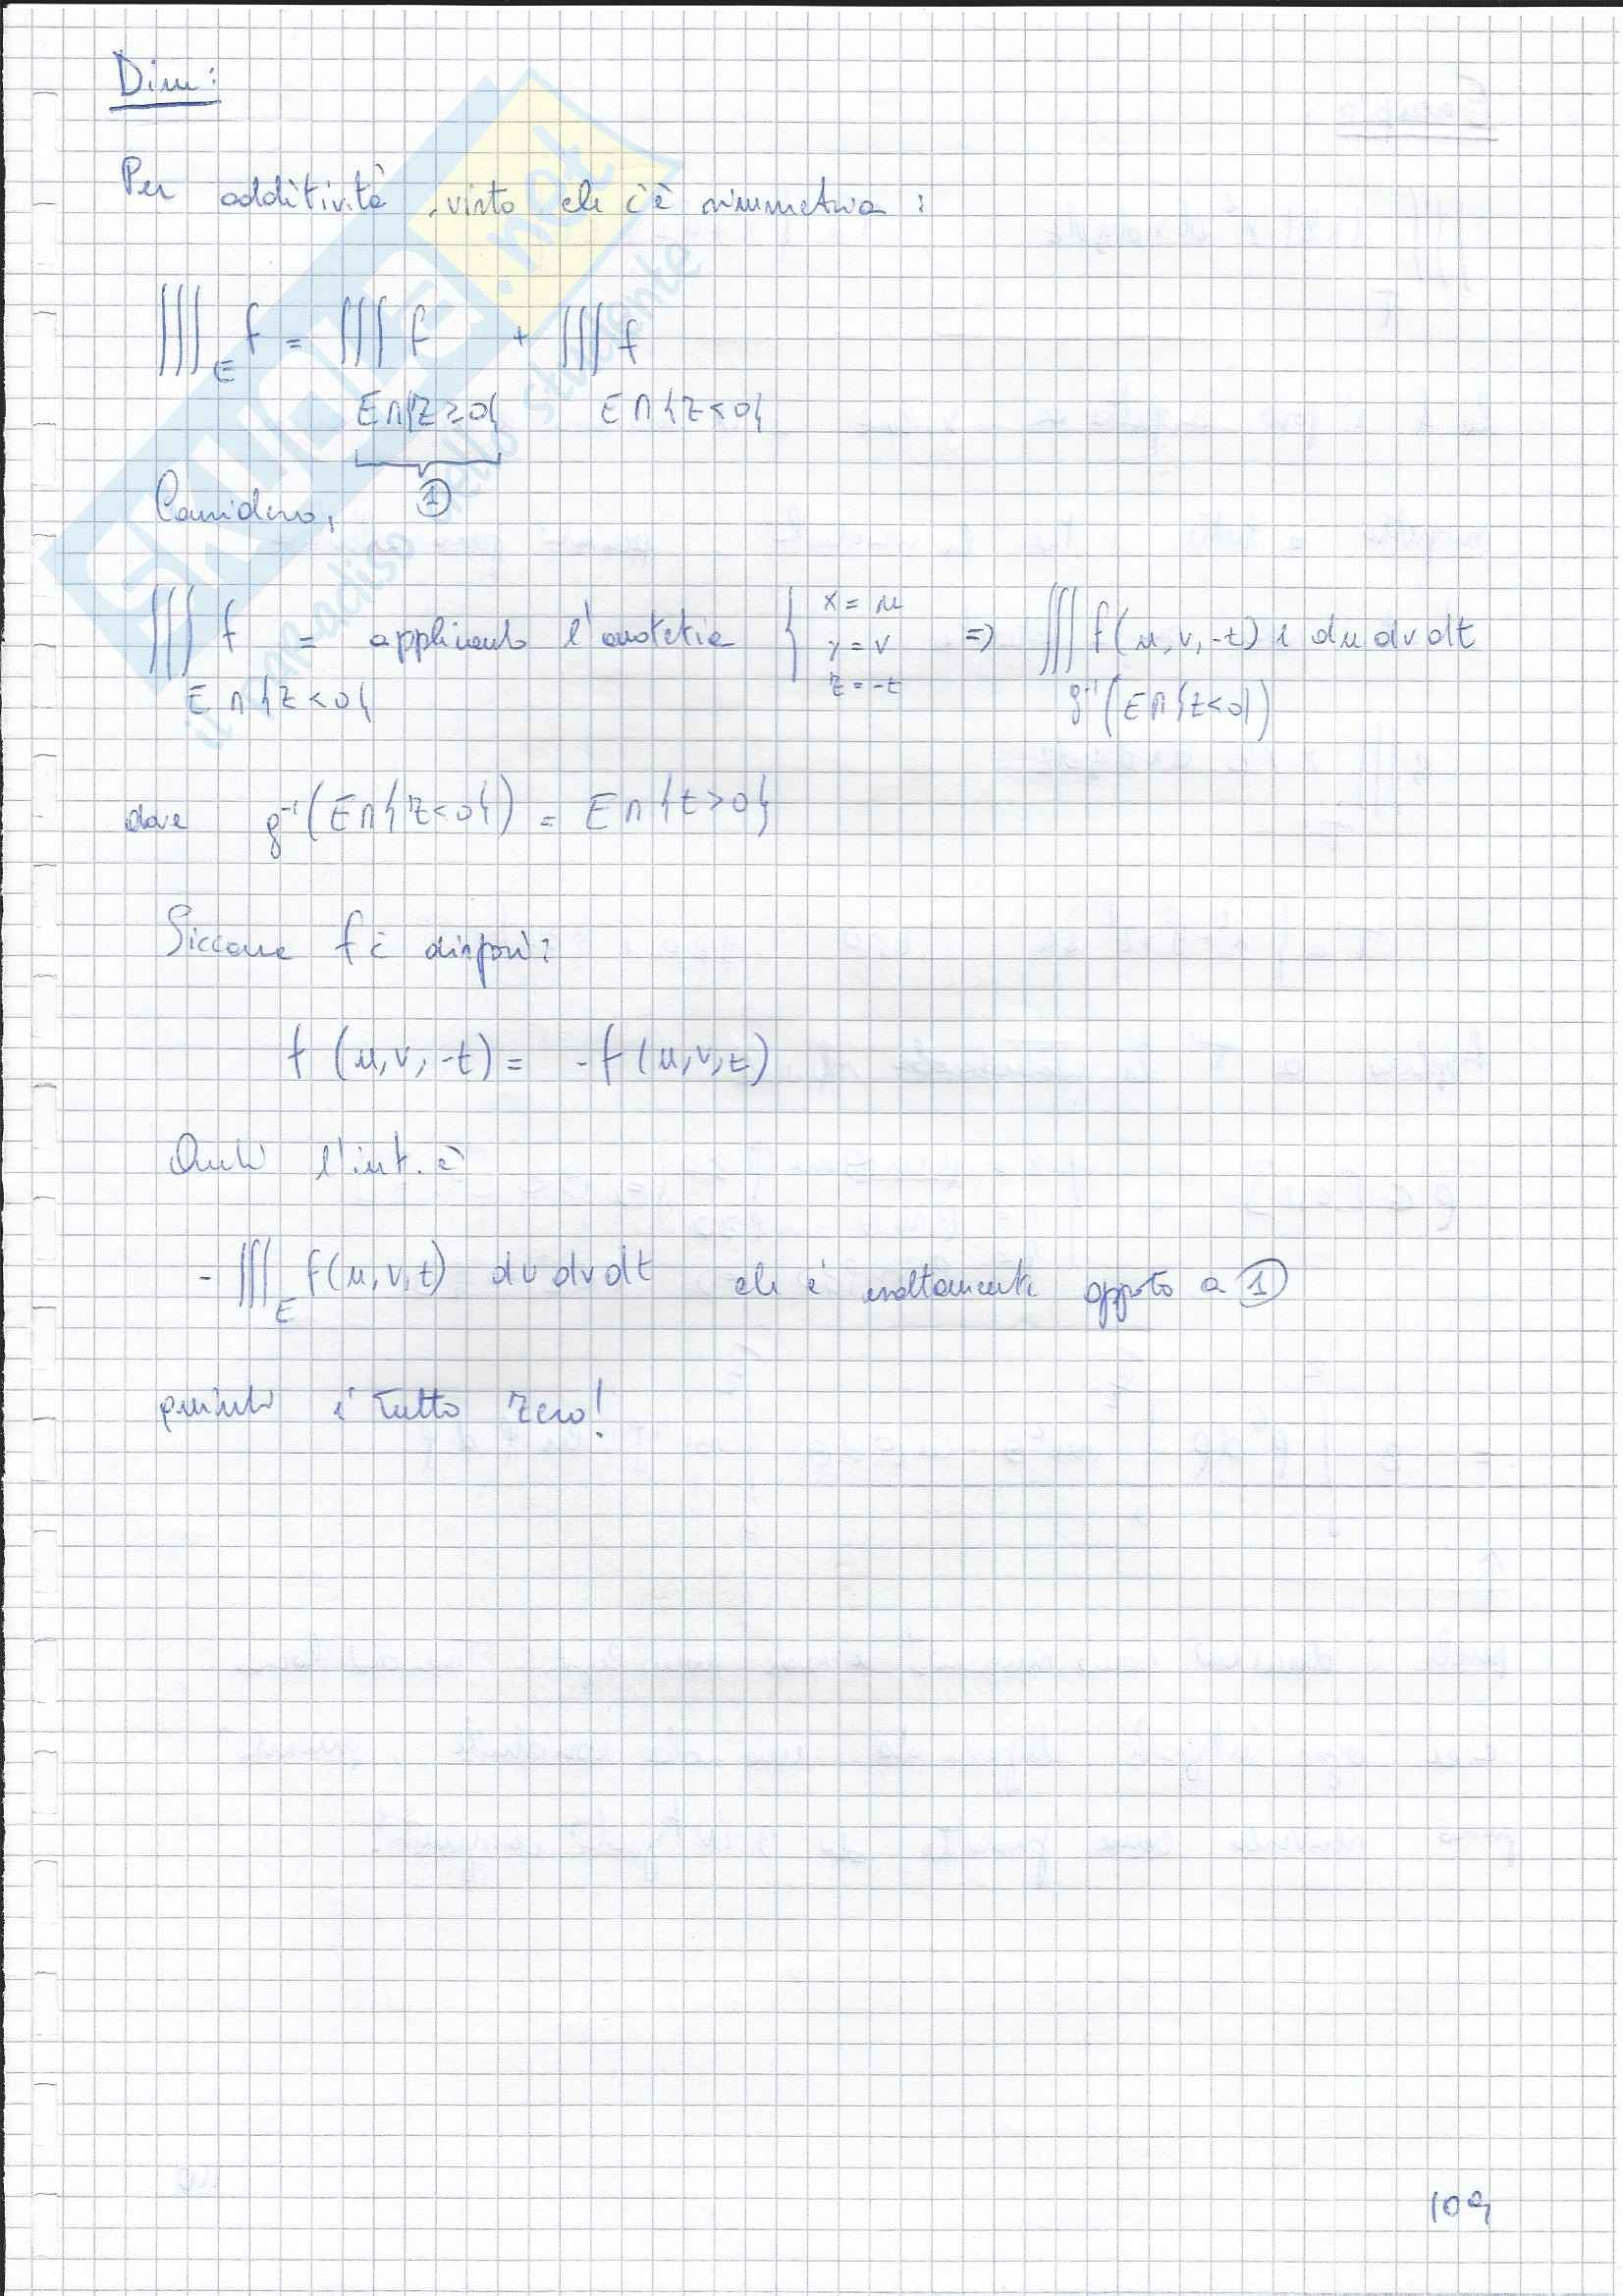 Dim:
Per additività, visto che c'è simmetria:
∭_E f = ∭ f + ∭ f
E∩{z≥0} E∩{z<0}
①
Considero,
∭ f = applicando l'omotetia { x = u ⇒ ∭ f(u,v,-t) 1 du dv dt
y = v
z = -t
E∩{z<0} g⁻¹(E∩{z<0})
dove g⁻¹(E∩{z<0}) = E∩{t>0}
Siccome f è dispari:
f(u,v,-t) = -f(u,v,t)
Quindi l'int. è
-∭_E f(u,v,t) du dv dt che è esattamente opposto a ①
quindi è tutto zero!
109
SKUOLA.net
il paradiso dello studente